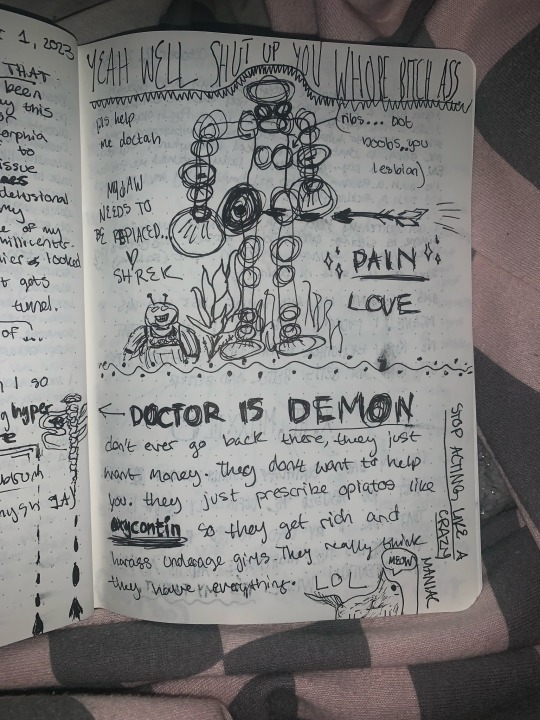 1, 2023
THAT
been
my this
or
orphia
s to
issue
delusional
my
e of my
millicents.
dies looked
t gets
tunnel.
of ...
n I so
g hyper
YEAH WELL SHUT UP YOU WHORE BITCH ASS
pls help
me doctah
(ribs... not
boobs.. you
lesbian)
MY JAW
NEEDS TO
BE REPLACED...
SHREK
PAIN
LOVE
← DOCTOR IS DEMON
don't ever go back there, they just
want money. They don't want to help
you. they just prescribe opiates like
oxycontin so they get rich and
harass underage girls. They really think
they have everything.
LOL
MEOW
STOP ACTING LIKE A
CRAZY
MANIAC